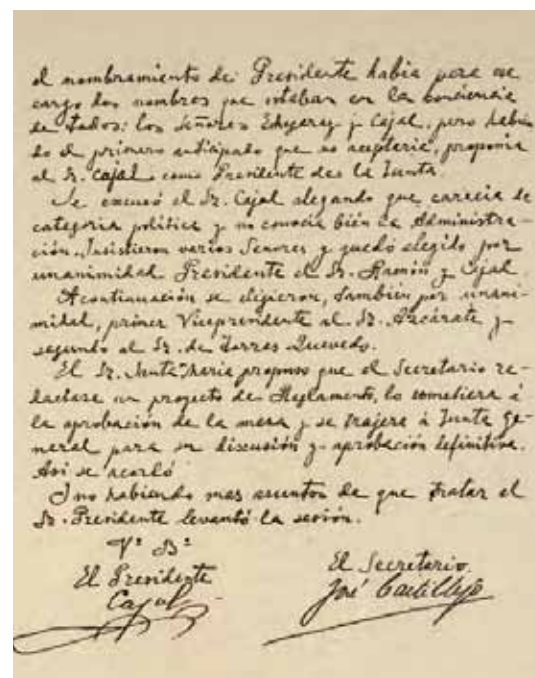 el nombramiento de Presidente habia para ese
cargo dos nombres que estaban en la conciencia
de todos: los Señores Echegaray y Cajal, pero habien
do el primero anticipado que no aceptaria, proponia
al Sr. Cajal como Presidente de la Junta.
Se excusó el Sr. Cajal alegando que carecia de
categoria politica y no conocia bién la Administra-
ción. Insistieron varios Señores y quedó elegido por
unanimidad Presidente el Sr. Ramón y Cajal.
A continuación se eligieron, también por unani-
midad, primer Vicepresidente al Sr. Azcárate y
segundo al Sr. de Torres Quevedo.
El Sr. Santa Maria propuso que el Secretario re-
dactase un proyecto de Reglamento, lo sometiera á
la aprobación de la mesa y se trajere á Junta ge-
neral para su discusión y aprobación definitiva.
Asi se acordó
Y no habiendo mas asuntos de que tratar el
Sr. Presidente levantó la sesión.
Vº Bº
El Presidente
Cajal
El Secretario
José Castillejo